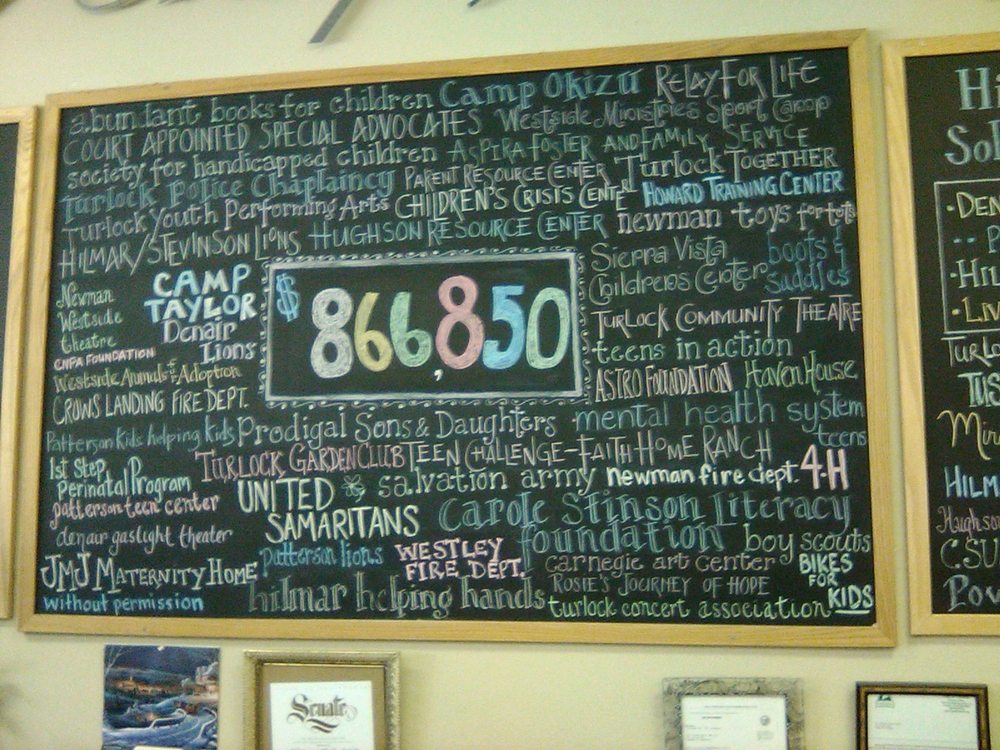 abundant books for children Camp Okizu RELAY FOR LIFE
COURT APPOINTED SPECIAL ADVOCATES Westside Ministries Sport Camp
society for handicapped children ASPIRA FOSTER AND FAMILY SERVICE
Turlock Police Chaplaincy PARENT RESOURCE CENTER TURLOCK TOGETHER
Turlock Youth Performing Arts CHILDREN'S CRISIS CENTE HOWARD TRAINING CENTER
HILMAR/STEVINSON LIONS HUGHSON RESOURCE CENTER newman toys for tots
Newman
Westside
theatre
CAMP
TAYLOR
Denair
Lions
CNPA FOUNDATION
Westside Animals f Adoption
CROWS LANDING FIRE DEPT.
$866,850
Sierra Vista
Childrens Center
boots &
saddles
TURLOCK COMMUNITY THEATRE
teens in action
ASTRO FOUNDATION HAVEN HOUSE
Patterson kids helping kids Prodigal Sons & Daughters mental health system
teens
1st Step
Perinatal Program
TURLOCK GARDEN CLUB TEEN CHALLENGE-FAITH HOME RANCH
patterson teen center
UNITED
SAMARITANS
salvation army newman fire dept. 4-H
denair gaslight theater
Carole Stinson Literacy
foundation
boy scouts
JMJ MATERNITY HOME patterson lions WESTLEY
FIRE DEPT.
carnegie art center
BIKES
FOR
KIDS
ROSIE'S JOURNEY OF HOPE
without permission hilmar helping hands turlock concert association
H
Sol
DEN
HIL
LIV
TURLO
TUS
Min
HILM
Hughso
C.SU
Pow
Senate